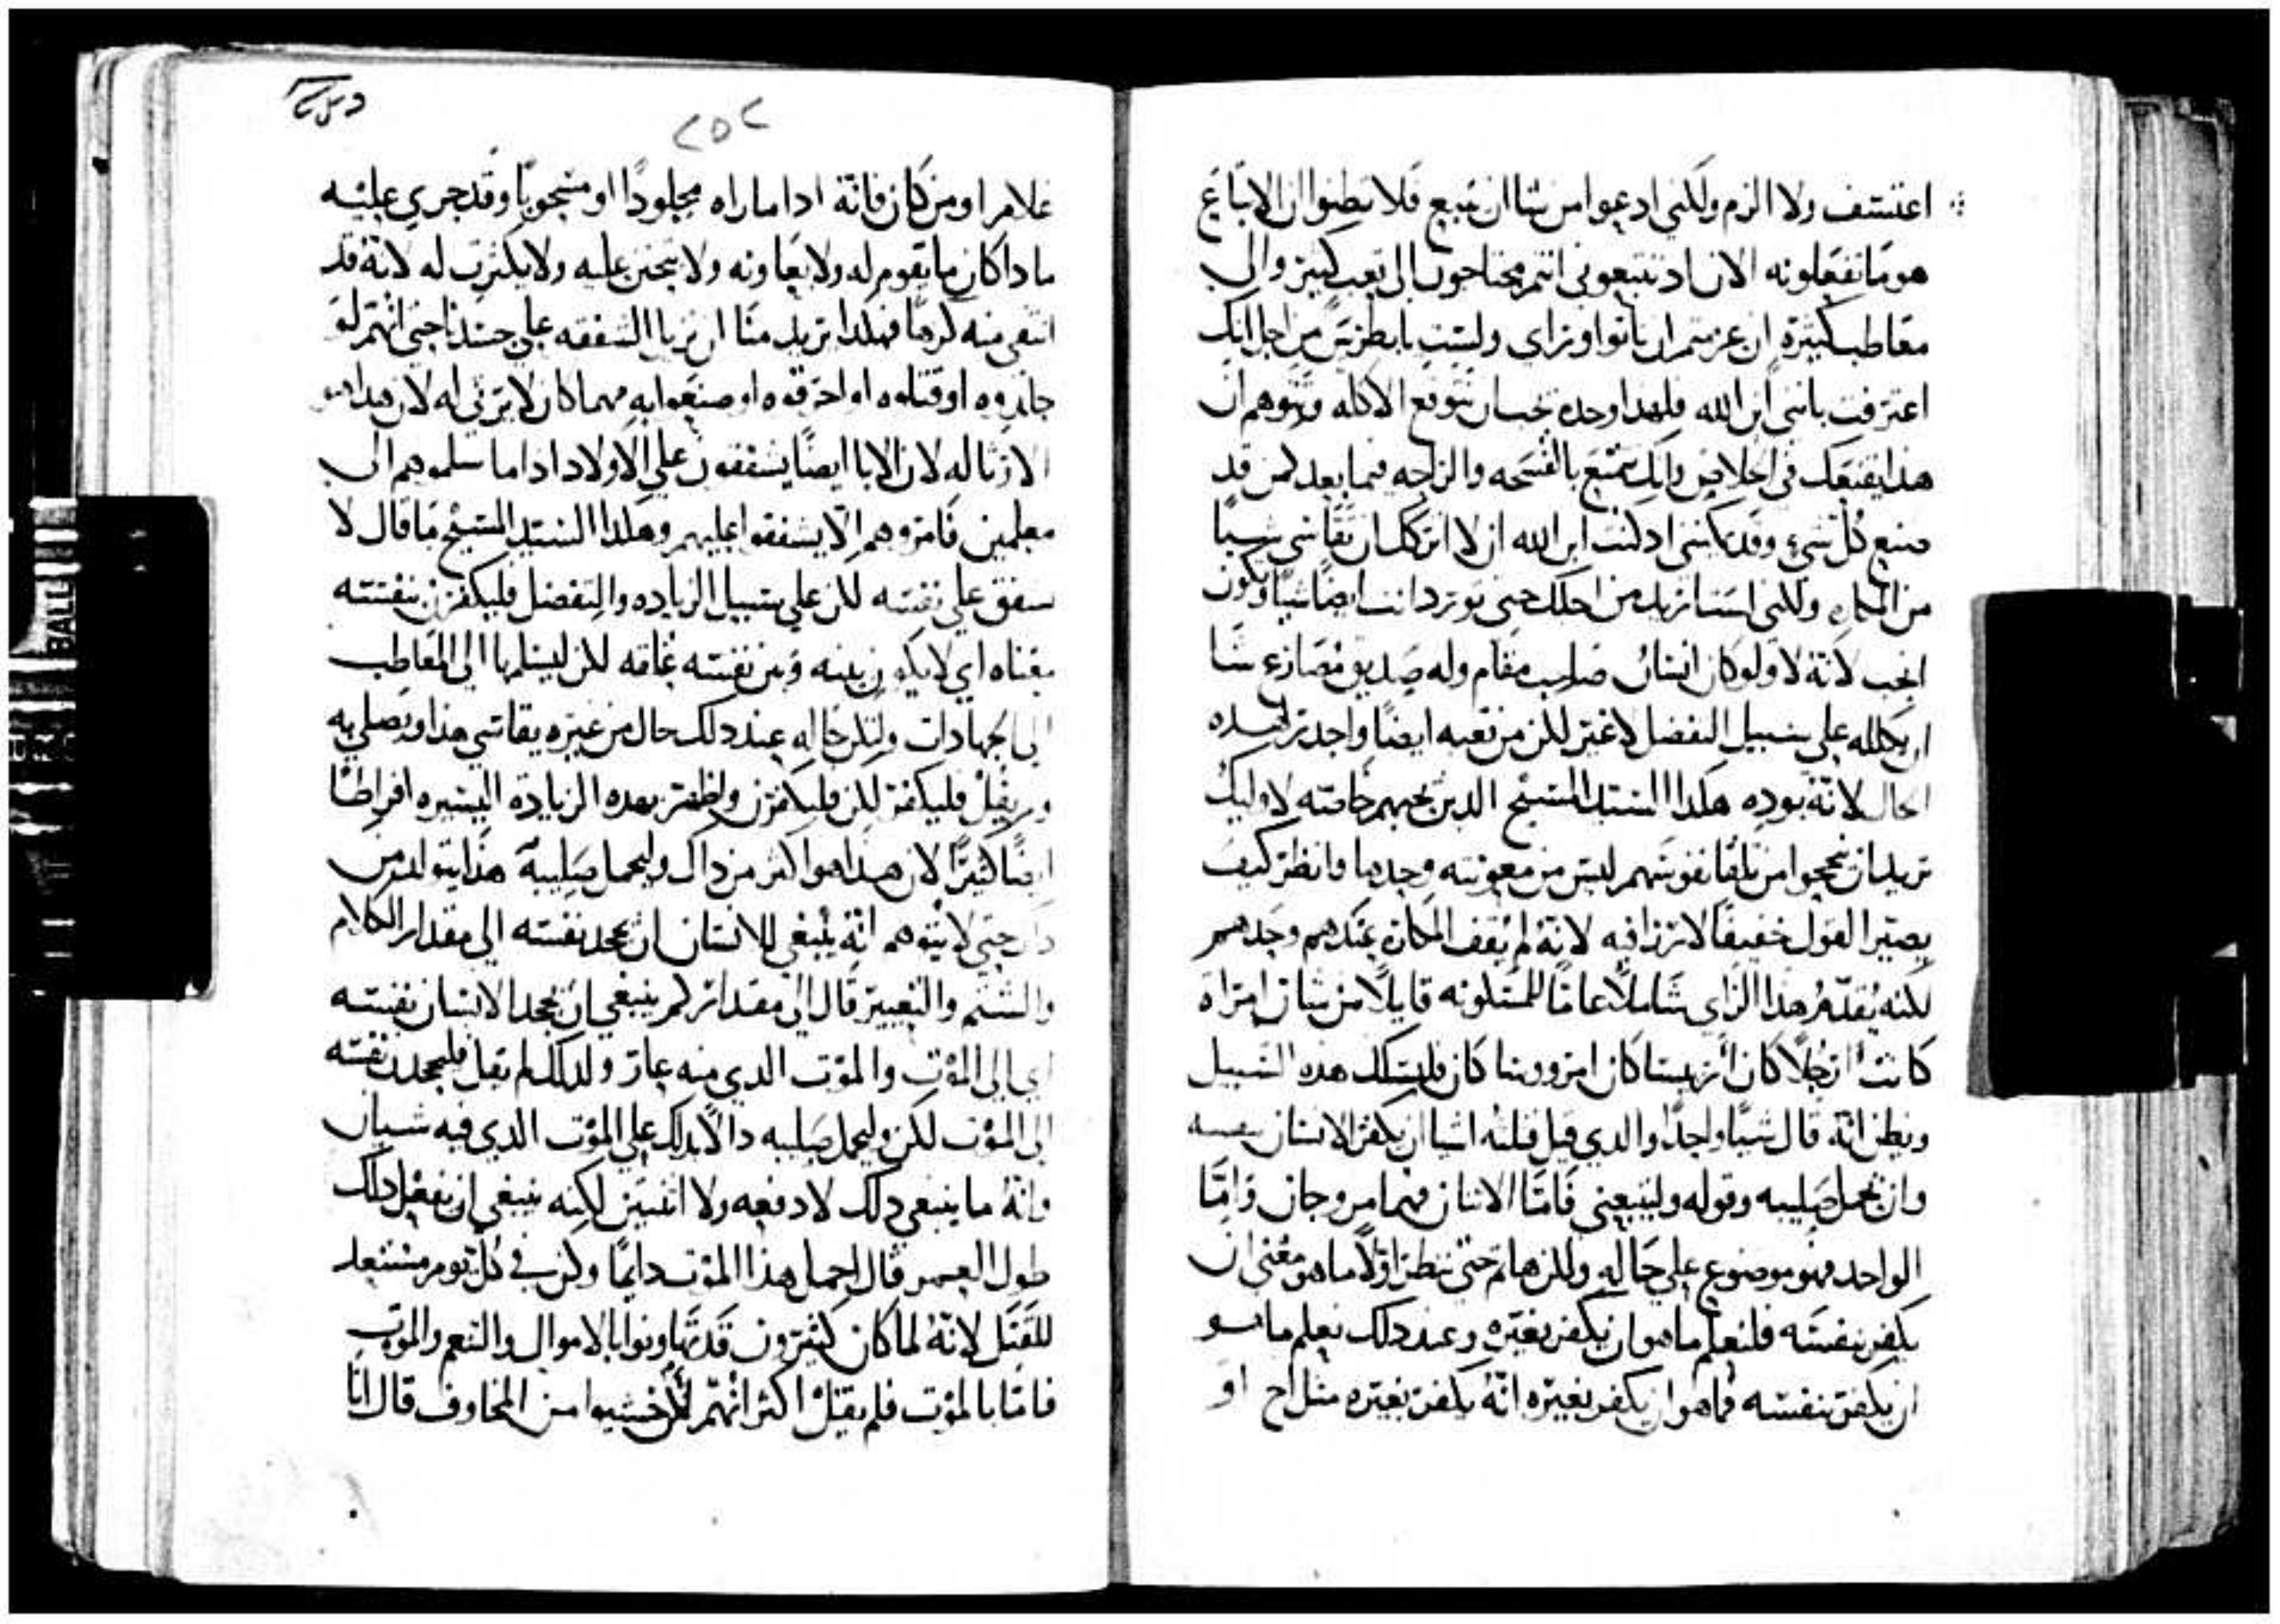 اعتسف ولا الزم ولكني ادعوا من شا ان يتبع فلا تظنوا ان الاتباع
هو ما تفعلونه الان اد تتبعوني انتم محتاجون الى تعب كبير والى
معاطب كثيرة ان عزمتم ان تاتوا وراى ولست يا بطرس من اجل انك
اعترفت بانني ابن الله فلهدا وحده تحب ان تتوقع الاكله وتتوهم ان
هدا يقنعك في اخلاص وانك تتمتع بالفسحه والراحه فيما بعد كمن قد
صنع كل شيء وقد يمكنني اد كنت ابن الله ان لا اتركك ان تقاسي شيا
من المكاره ولكني لست اريد من اجلك حتى تورد انت ايضا شيا وتكون
انجب لانه لا ولو كان انسان صاحب مقام وله صديق مصارع شا
ان يكلله على سبيل التفضل لا غير لكن من تعبه ايضا واجد لهده
الحال لانه يوده هكدا السيد المسيح الدين يحبهم خاصته لاوليك
يريد ان ينجحوا من تلقا نفوسهم ليس من معونته وحدها وانظر كيف
يصير القول خفيفا لا ترزا فيه لانه لم يقف المكاره عندهم وحدهم
لكنه يقدم هدا الراي شاملا عاما للمسكونه قايلا من شا ان امراة
كانت ان رجلا كان ان رييسا كان ام رووسا كان فليسلك هده السبيل
ويظن انه قال شيا واحدا والدي قيل ثلثه اشيا ان يكفر الانسان بنفسه
وان يحمل صليبه وقوله وليتبعني فاما الاتنان فهما مزوجان واما
الواحد فهو موضوع على حاله ولكن هلم حتى ننظر اولا ما هو معنى ان
يكفر بنفسه فلنعلم ما هو ان يكفر بغيره وعند دلك نعلم ما هو
ان يكفر بنفسه فما هو ان يكفر بغيره انه يكفر بغيره مثل اخ او
٢٥٢
غلام او من كان فانه ادا ما راه مجلودا او مسحوبا وقد جري عليه
ما دا كان ما يقوم له ولا يعاونه ولا يتحنن عليه ولا يكترث له لانه قد
انتفى منه كرها فهكدا يريد منا ان نزيل الشفقه على جسدنا حتى انهم لو
جلدوه او قتلوه او احرقوه او صنعوا به مهما كان لا يرثي له لان هدا هو
الارثا له لان الابا ايضا يشفقون على الاولاد ادا ما سلموهم الى
معلمين فامروهم الا يشفقوا عليهم وهكدا السيد المسيح ما قال لا
يشفق على نفسه لكن على سبيل الزياده والتفضل فليكفرن بنفسه
معناه اي لا يكون بينه وبين نفسه علقه لكن ليسلمها الى المعاطب
الى الجهادات وليكن حاله عند دلك حال من غيره يقاسي هدا ويصلي به
ولم يقل فليكفر لكن فليكفرن واظهر بهده الزيادة اليسيره افراطا
ايضا كثيرا لان هدا هو اكثر من داك وليحمل صليبه هدا يتولد من
داك حتى لا يتوهم انه ينبغي للانسان ان يجحد نفسه الى مقدار الكلام
والشتم والتعيير قال الى مقدار كم ينبغي ان يجحد الانسان نفسه
اي الى الموت والموت الدي منه عار ولدلك لم يقل فليجحدن نفسه
الى الموت لكن وليحمل صليبه دالا بدلك على الموت الدي فيه شيان
وانه ما ينبغي دلك لا دفعه ولا اثنين لكنه ينبغي ان يفعل دلك
طول العمر قال احمل هدا الموت دايما وكن في كل يوم مستعد
للقتل لانه لما كان كثيرون قد تهاونوا بالاموال والنعم والموت
فاما بالموت فلم يقتل اكثر انهم لكن خشيوا من المخاوف قال انا